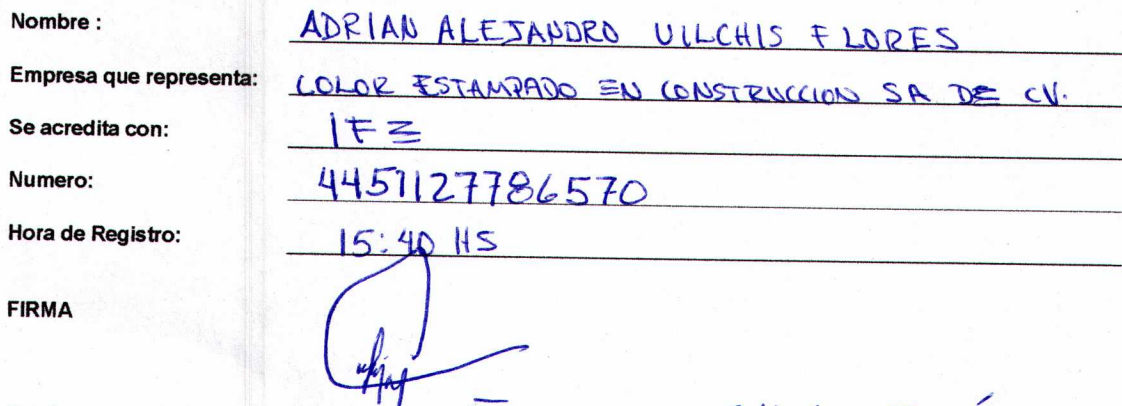 Nombre : ADRIAN ALEJANDRO VILCHIS FLORES
Empresa que representa: COLOR ESTAMPADO EN CONSTRUCCION SA DE CV.
Se acredita con: IFE
Numero: 4457127786570
Hora de Registro: 15:40 HS
FIRMA